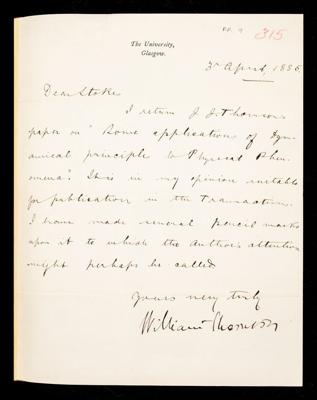 315
The University,
Glasgow.
3 April, 1885.
Dear Stokes
I return J J Thomson's
paper on "Some applications of Dyn-
amical principles to Physical Phen-
omena". It is in my opinion suitable
for publication in the Transactions.
I have made several pencil marks
upon it to which the Author's attention
might perhaps be called
Yours very truly
William Thomson